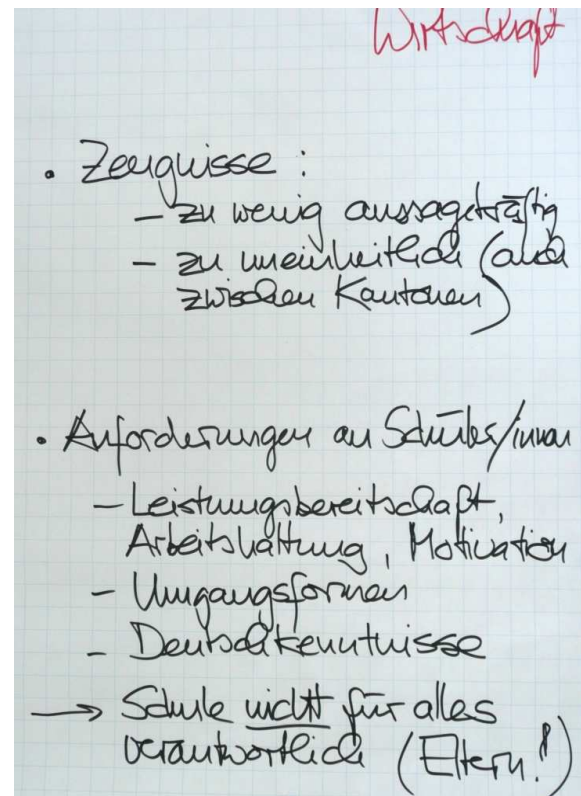 Wirtschaft
• Zeugnisse :
– zu wenig aussagekräftig
– zu uneinheitlich (auch
zwischen Kantonen)
• Anforderungen an Schüler/innen
– Leistungsbereitschaft,
Arbeitshaltung, Motivation
– Umgangsformen
– Deutschkenntnisse
→ Schule nicht für alles
verantwortlich (Eltern!)